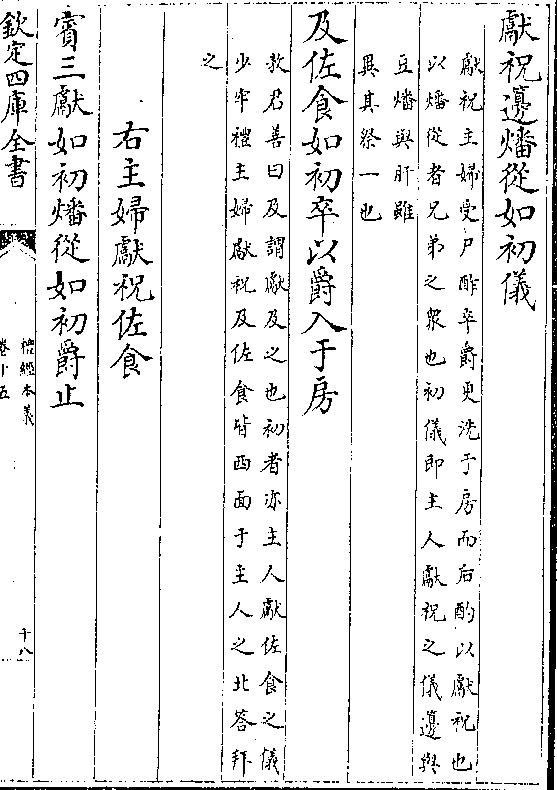 獻祝籩燔從如初儀
獻祝主婦受尸酢卒爵更洗于房而后酌以獻祝也
以燔從者兄弟之衆也初儀即主人獻祝之儀籩與
豆燔與肝雖
異其祭一也
及佐食如初卒以爵入于房
敖君善曰及謂獻及之也初者亦主人獻佐食之儀
少牢禮主婦獻祝及佐食皆西面于主人之北答拜
之
右主婦獻祝佐食
賓三獻如初燔從如初爵止
欽定四庫全書
禮經本義
卷十五
十八